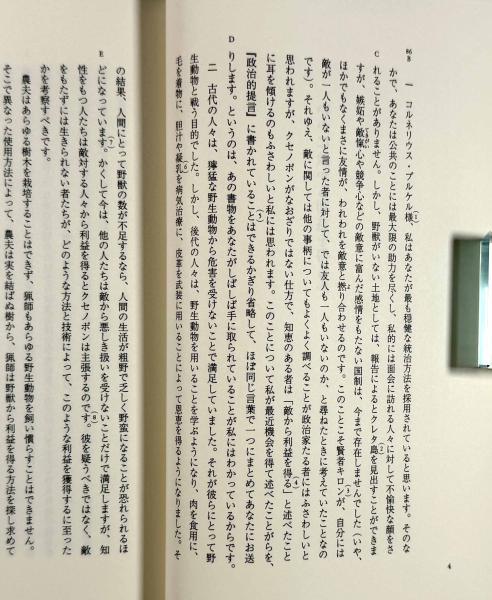 4
86
B
一　コルネリウス・プルケル様(1)、私はあなたが最も穏健な統治方法を採用されていると思います。そのな
かで、あなたは公共のことには最大限の助力を尽くし、私的には面会に訪れる人々に対して不愉快な顔をさ
C
れることがありません。しかし、野獣がいない土地としては、報告によるとクレタ島(2)を見出すことができま
すが、嫉妬や敵愾心や競争心などの敵意に富んだ感情をもたない国制は、今まで存在しませんでした（いや、
ほかでもなくまさに友情が、われわれを敵意と撚り合わせるのです。このことこそ賢者キロン(3)が、自分には
敵が一人もいないと言った者に対して、では友人も一人もいないのか、と尋ねたときに考えていたことなの
です）。それゆえ、敵に関しては他の事柄についてもよくよく調べることが政治家たる者にはふさわしいと
思われますが、クセノポンがなおざりではない仕方で、知恵のある者は「敵から利益を得る(4)」と述べたこと
に耳を傾けるのもふさわしいと私には思われます。このことについて私が最近機会を得て述べたことがらを、
D
『政治的提言』に書かれていること(5)はできるかぎり省略して、ほぼ同じ言葉で一つにまとめてあなたにお送
りします。というのは、あの書物をあなたがしばしば手に取られていることが私にはわかっているからです。
二　古代の人々は、獰猛な野生動物から危害を受けないことで満足していました。それが彼らにとって野
生動物と戦う目的でした。しかし、後代の人々は、野生動物を用いることを学ぶようになり、肉を食用に、
毛を着物に、胆汁や凝乳(6)を病気治療に、皮革を武装に用いることによって恩恵を得るようになりました。そ
の結果、人間にとって野獣の数が不足するなら、人間の生活が粗野で乏しく野蛮になることが恐れられるほ
E
どになっています(7)。かくして今は、他の人たちは敵から悪しき扱いを受けないことだけで満足しますが、知
性をもつ人たちは敵対する人々から利益を得るとクセノポンは主張するのです(8)。彼を疑うべきではなく、敵
をもたずには生きられない者たちが、どのような方法と技術によって、このような利益を獲得するに至った
かを考察すべきです。
農夫はあらゆる樹木を栽培することはできず、猟師もあらゆる野生動物を飼い慣らすことはできません。
そこで異なった使用方法によって、農夫は実を結ばぬ樹から、猟師は野獣から利益を得る方法を探し求めて